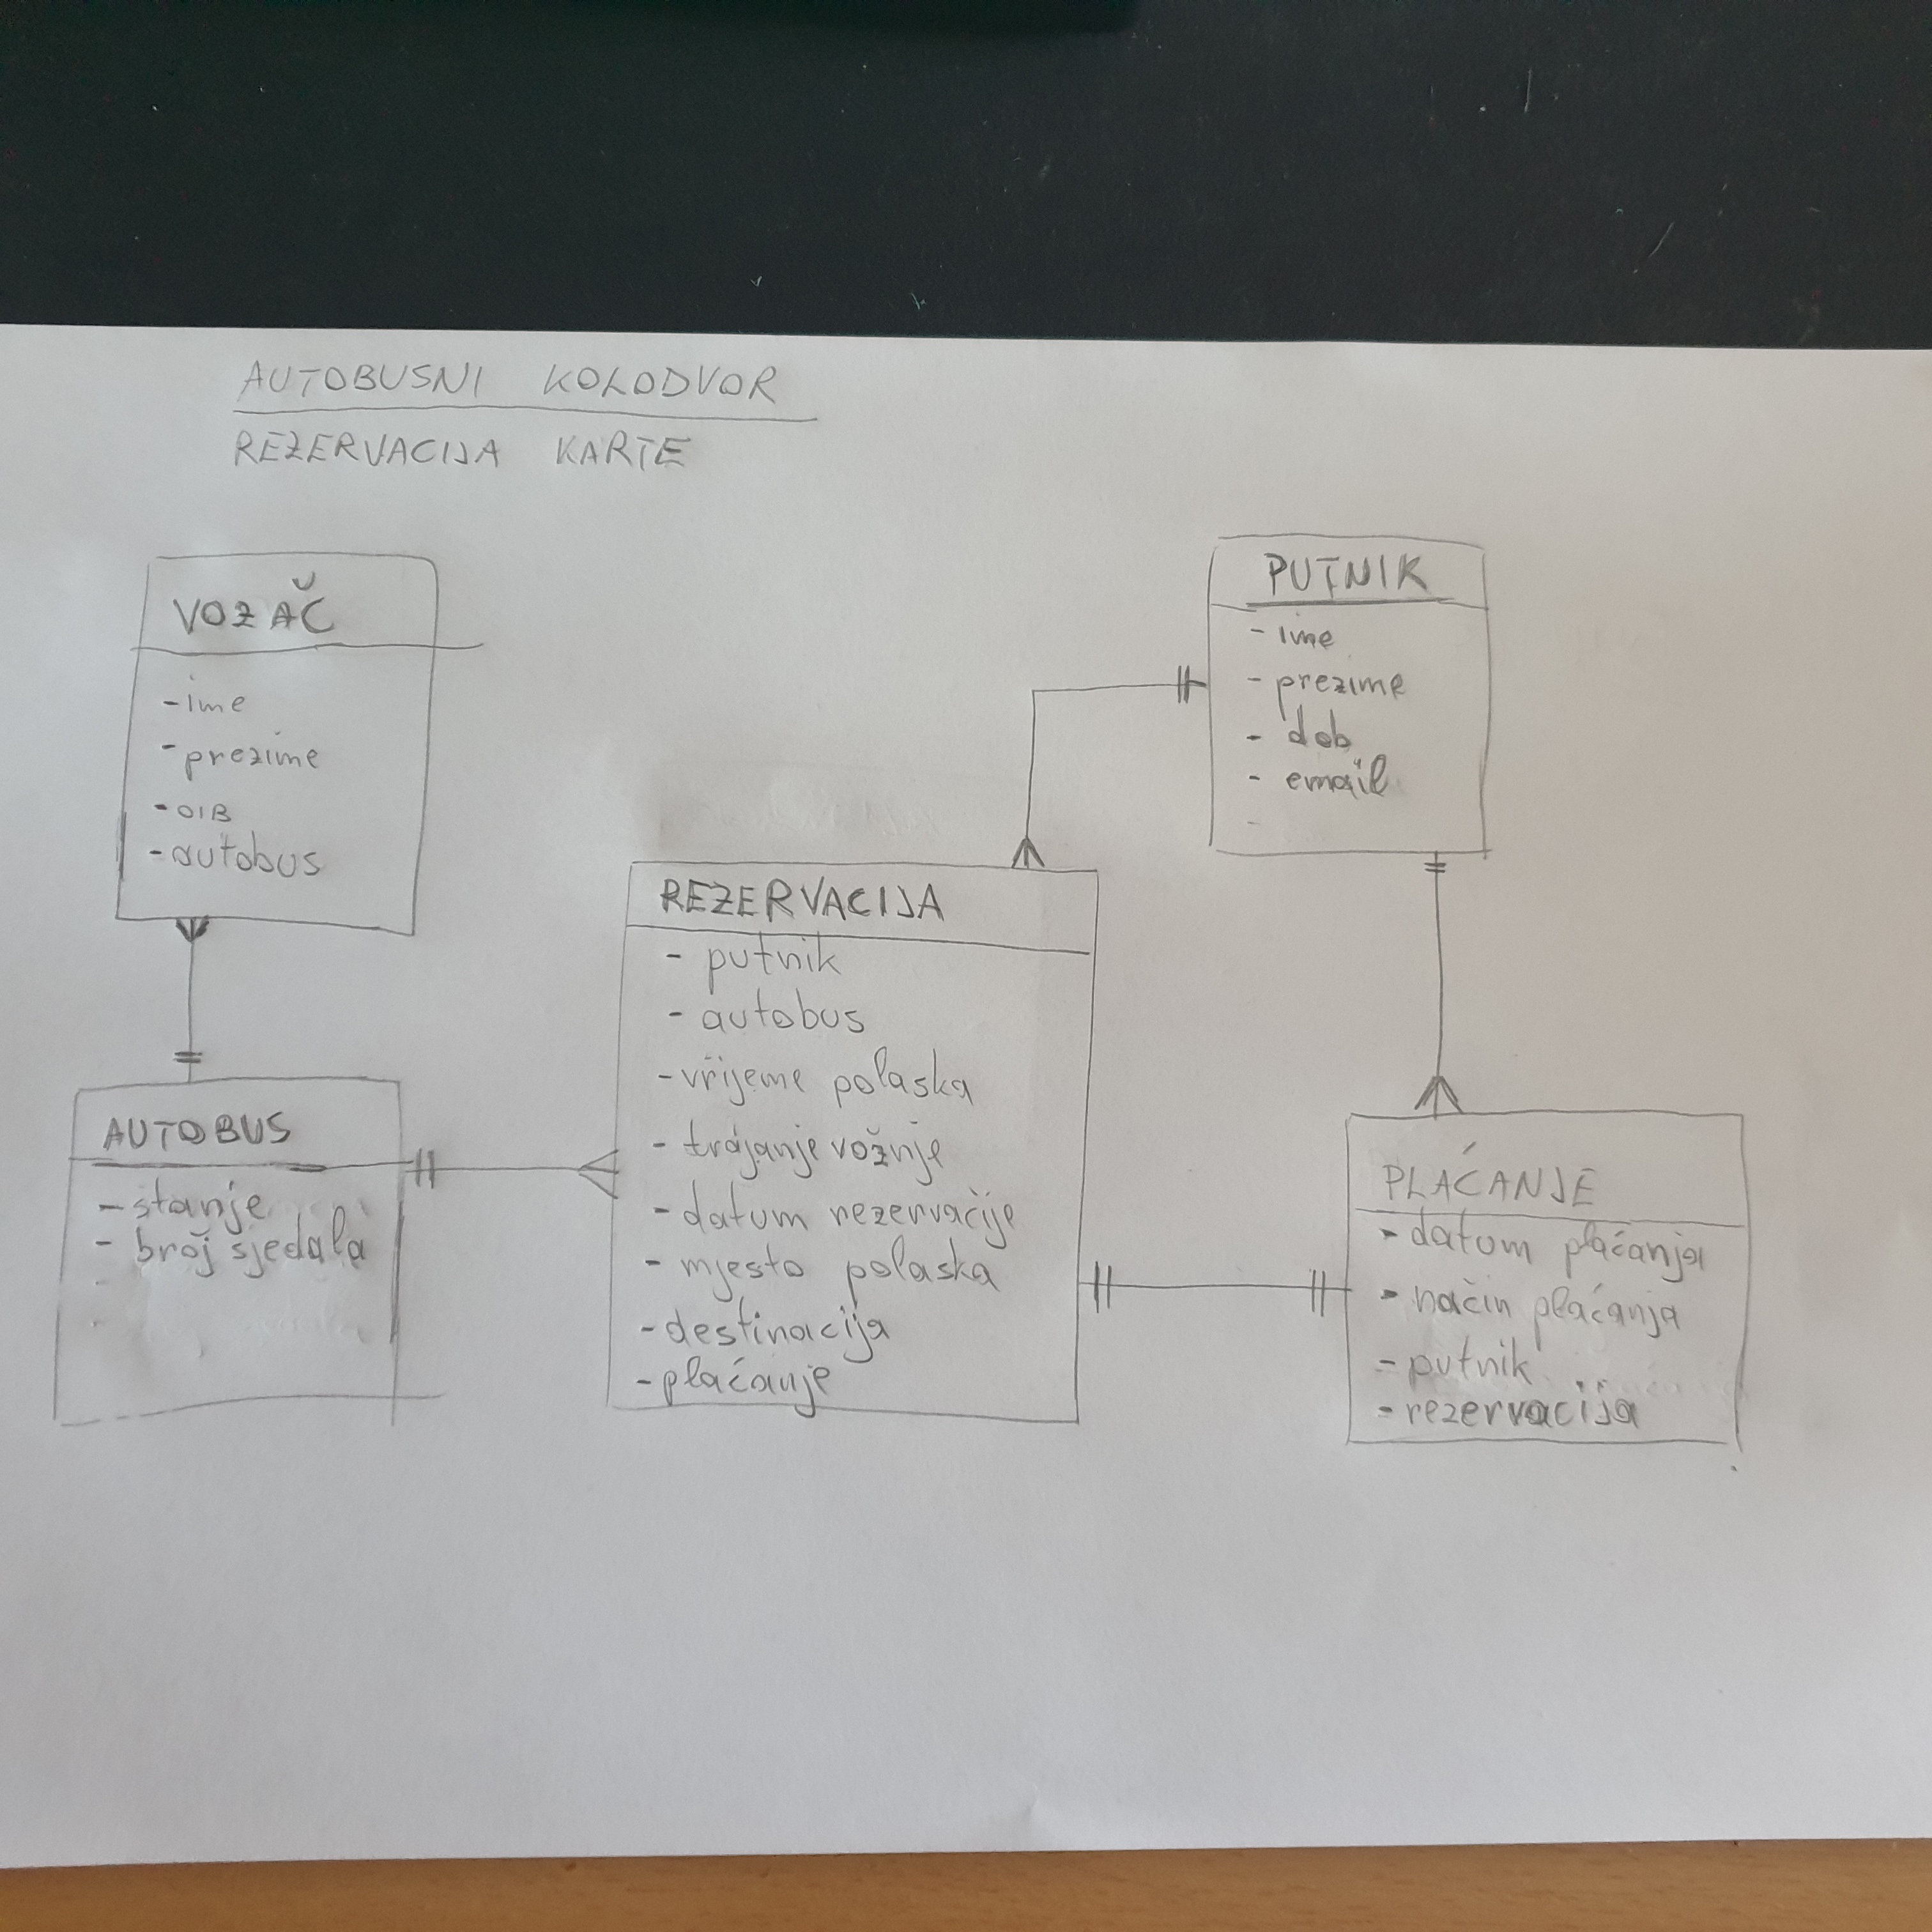 AUTOBUSNI KOLODVOR
REZERVACIJA KARTE
VOZAČ
-ime
-prezime
-OIB
-autobus
PUTNIK
- ime
- prezime
- dob
- email
-
REZERVACIJA
- putnik
- autobus
-vrijeme polaska
- trajanje vožnje
- datum rezervacije
- mjesto polaska
-destinacija
-plaćanje
AUTOBUS
- stanje
- broj sjedala
PLAĆANJE
- datum plaćanja
- način plaćanja
- putnik
- rezervacija